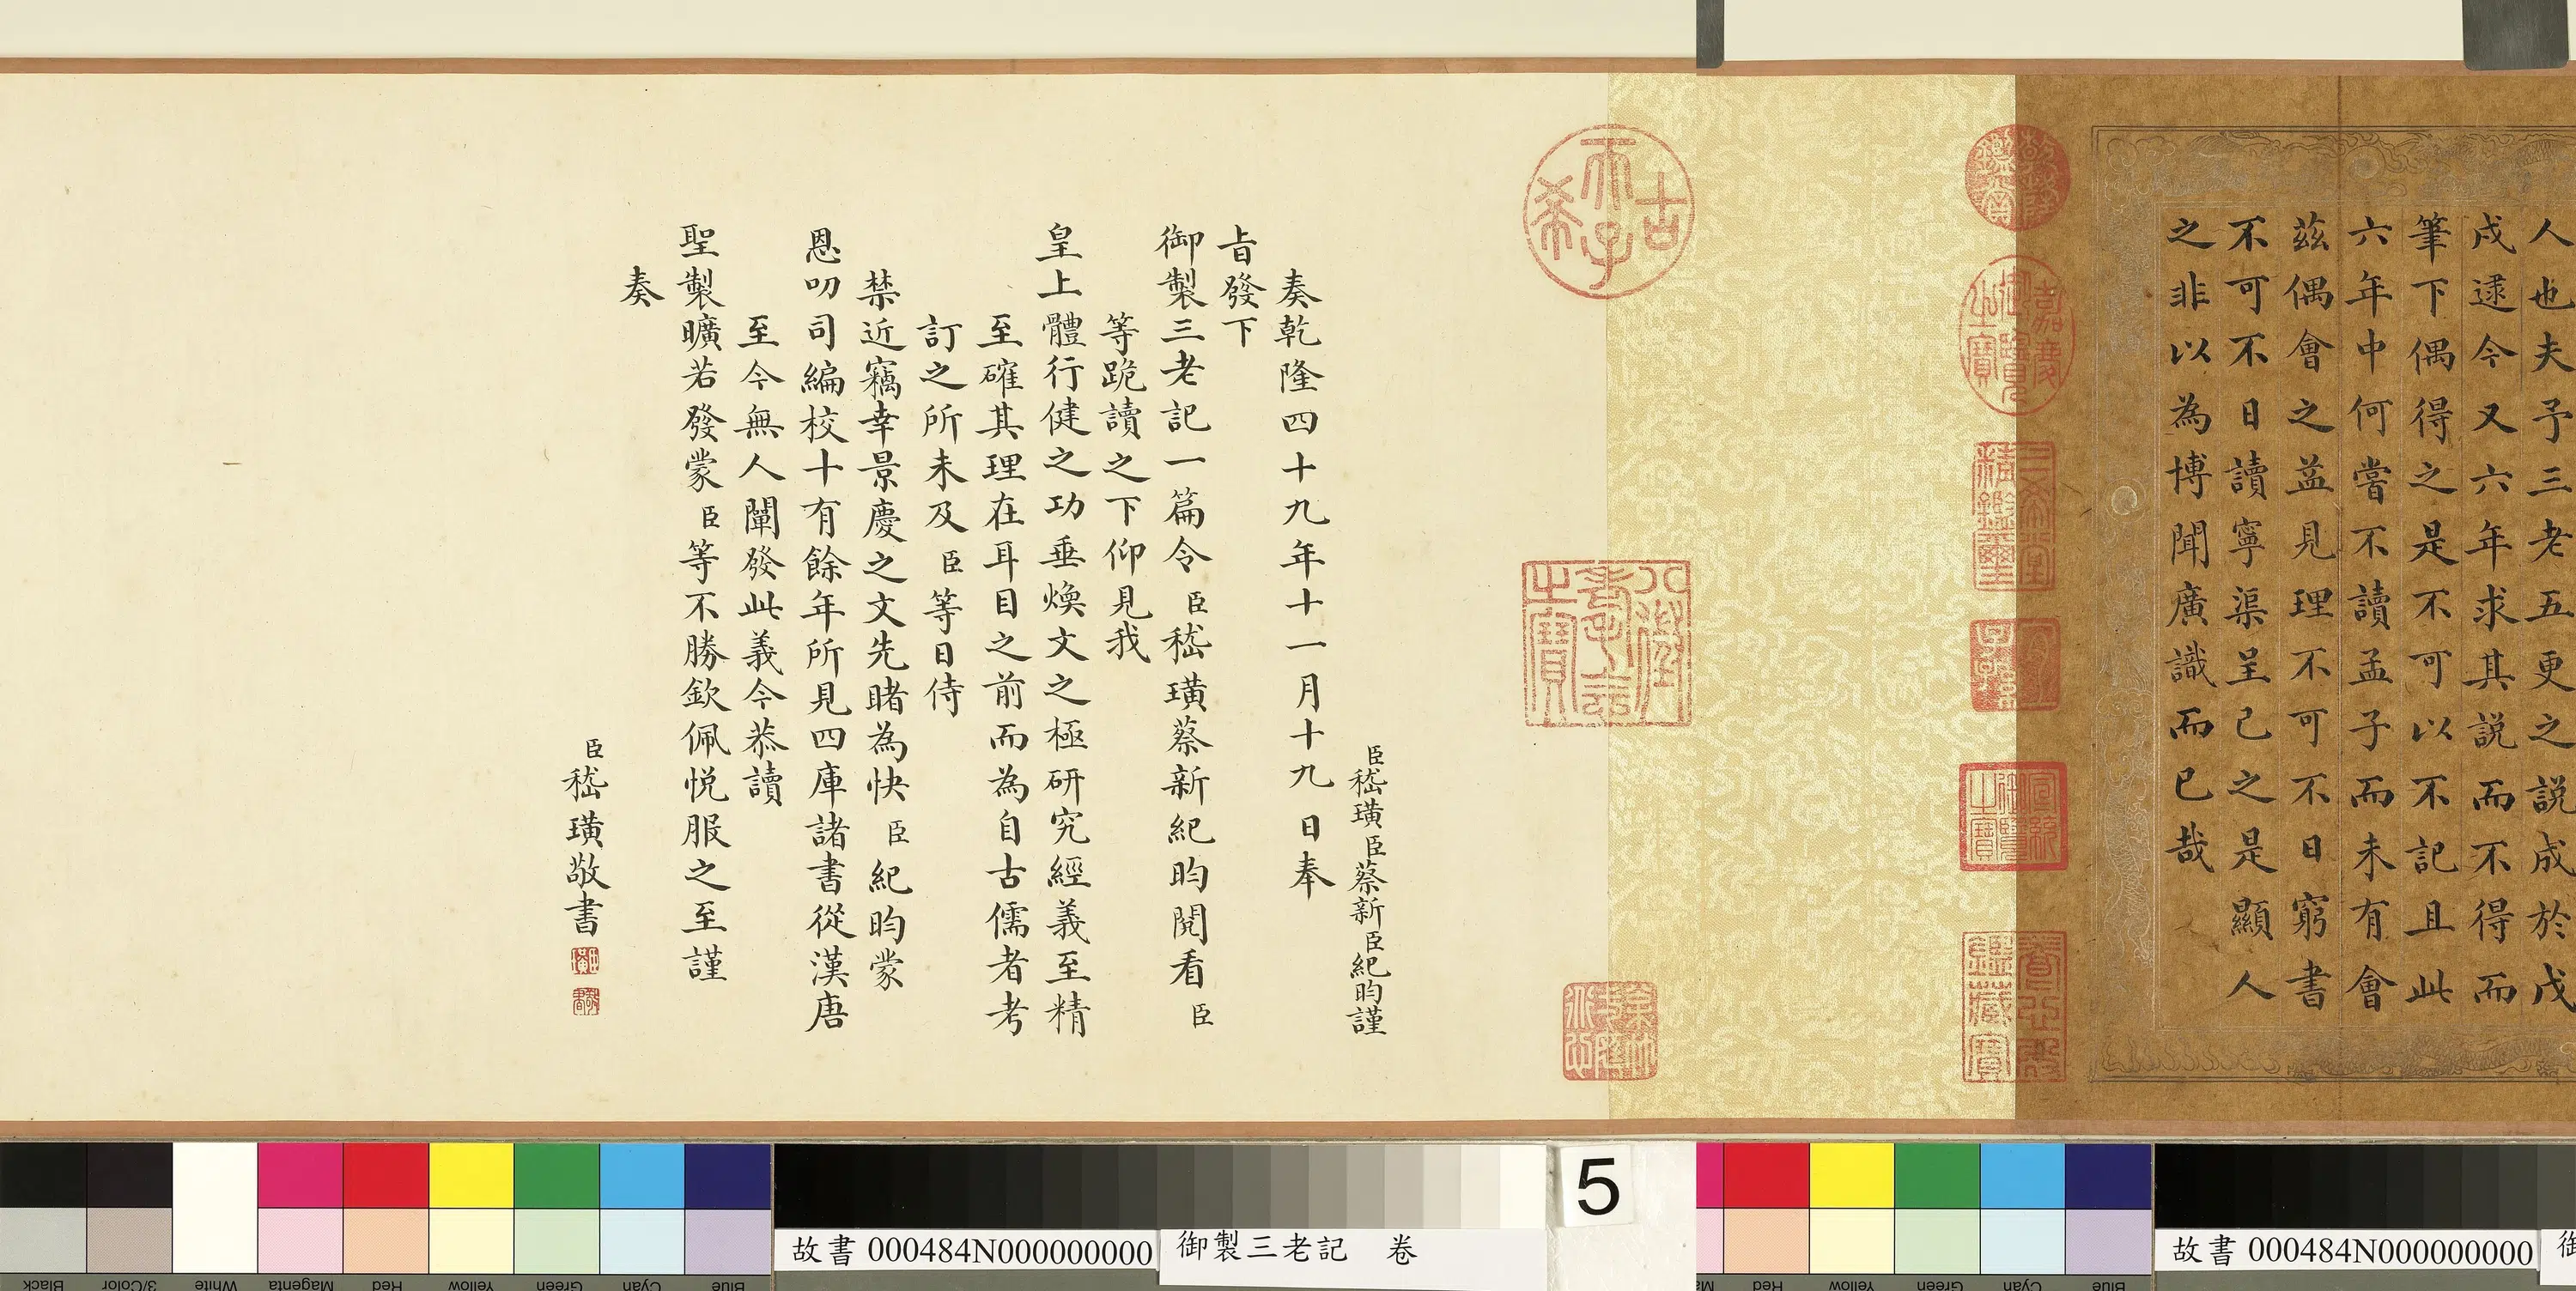 人也夫予三老五更之說成於戊
戌逮今又六年求其說而不得而
筆下偶得之是不可以不記且此
六年中何嘗不讀孟子而未有會
茲偶會之益見理不可不日窮書
不可不日讀寧渠呈己之是顯人
之非以為博聞廣識而已哉
乾隆鑑賞
嘉慶御覽之寶
三希堂精鑑璽
宜子孫
宣統御覽之寶
壽西鑑藏寶
古希天子
八徵耄念之寶
臣嵇璜臣蔡新臣紀昀謹
奏乾隆四十九年十一月十九日奉
旨發下
御製三老記一篇令臣嵇璜蔡新紀昀閱看臣
等跪讀之下仰見我
皇上體行健之功垂煥文之極研究經義至精
至確其理在耳目之前而為自古儒者考
訂之所未及臣等日侍
禁近竊幸景慶之文先睹為快臣紀昀蒙
恩叨司編校十有餘年所見四庫諸書從漢唐
至今無人闡發此義今恭讀
聖製曠若發蒙臣等不勝欽佩悅服之至謹
奏
臣嵇璜敬書
臣璜
敬書
Black
3/Color
White
Magenta
Red
Yellow
Green
Cyan
Blue
故書 000484N000000000
御製三老記 卷
5
Red
Yellow
Green
Cyan
Blue
故書 000484N000000000